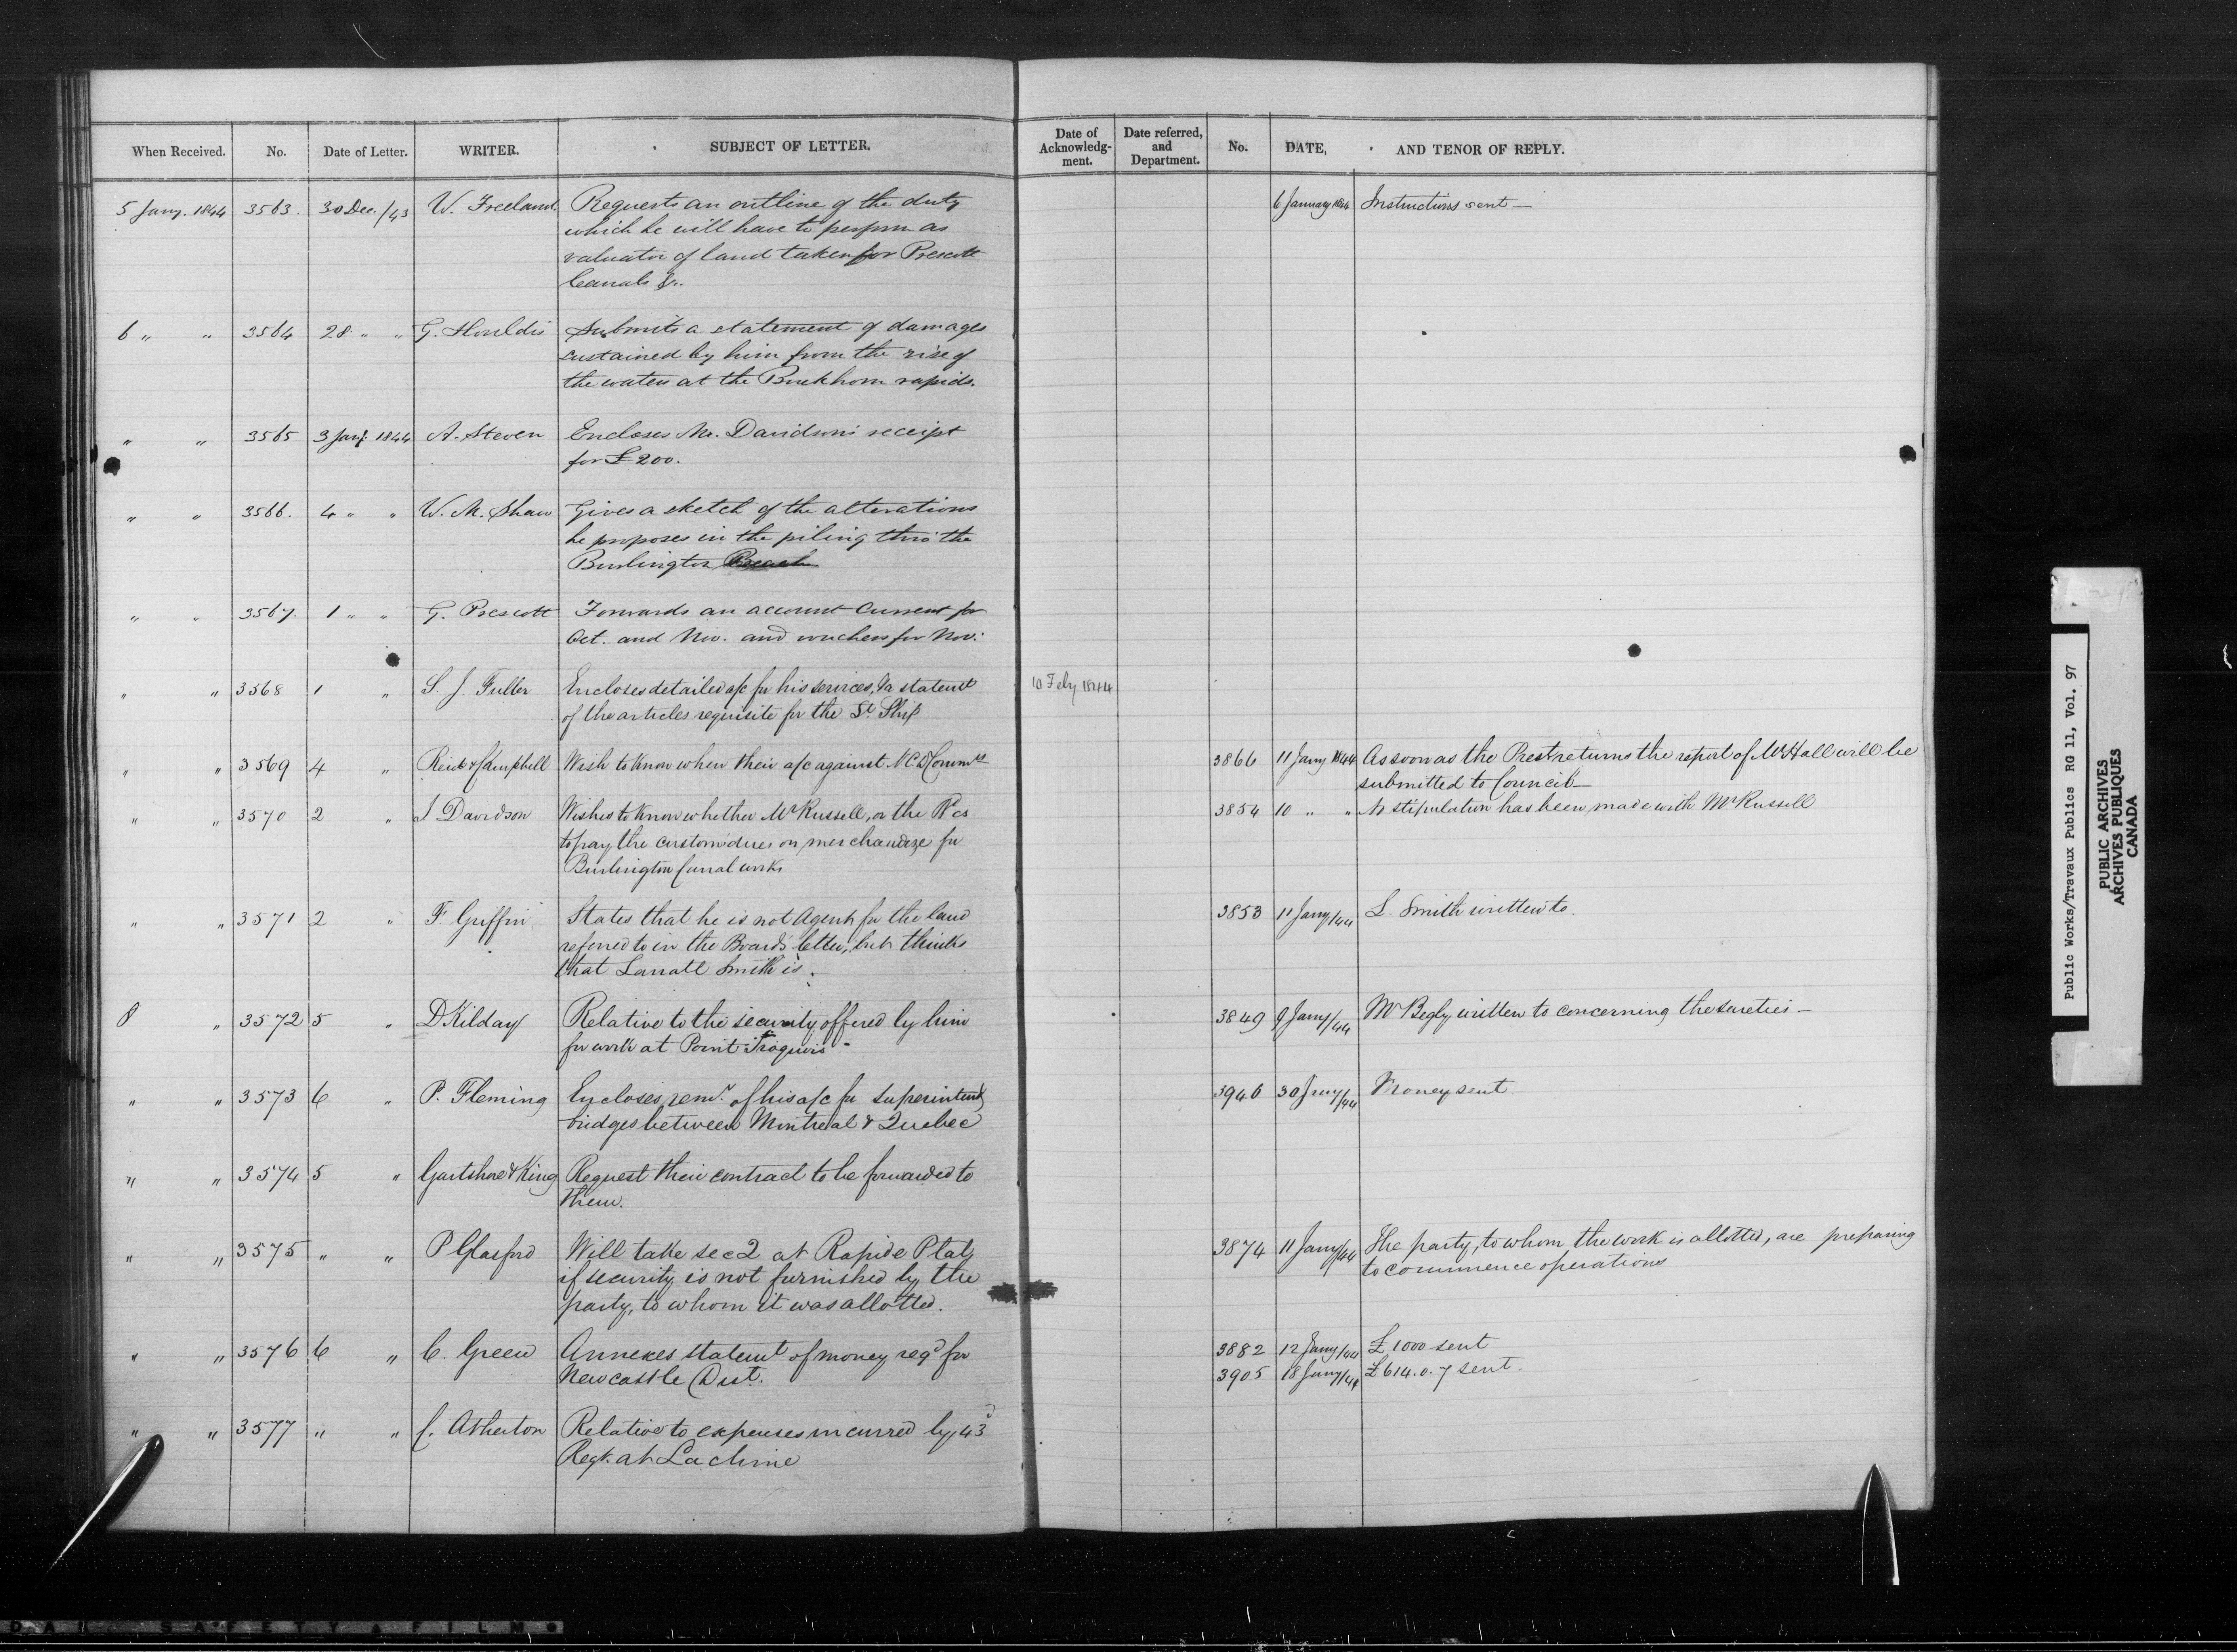 When Received. No. Date of Letter. WRITER. SUBJECT OF LETTER. Date of Acknowledg-ment. Date referred, and Department. No. DATE, AND TENOR OF REPLY.
5 Jany. 1844 3563. 30 Dec./43 W. Freeland Requests an outline of the duty 6 January 1844 Instructions sent —
which he will have to perform as
valuator of land taken for Prescott
Canals &c.
6 " " 3564 28 " " G. Shouldis Submits a statement of damages
sustained by him from the rise of
the waters at the Buckhorn rapids.
" " 3565 3 Jany. 1844 A. Steven Encloses Mr. Davidson's receipt
for £200.
" " 3566. 4 " " W. M. Shaw Gives a sketch of the alterations
he proposes in the piling thro' the
Burlington Beach
" " 3567. 1 " " G. Prescott Forwards an account Current for
Oct. and Nov. and vouchers for Nov:
" " 3568 1 " S. J. Fuller Encloses detailed a/c for his services, & a statemt 10 Feby 1844
of the articles requisite for the St. Ship
" " 3569 4 " Reid & Campbell Wish to know when their a/c against 3866 11 Jany 1844 As soon as the Prest returns the report of Mr Hall will be
submitted to Council —
" " 3570 2 " J Davidson Wishes to know whether Mr Russell, or the Bd is 3854 10 " " No stipulation has been made with Mr Russell
to pay the custom dues on merchandize for
Burlington Canal works
" " 3571 2 " F. Griffin States that he is not Agent for the land 3853 11 Jany/44 L. Smith written to.
referred to in the Board's letter, but thinks
that Larratt Smith is.
8 " 3572 5 " D Kilday Relative to the security offered by him 3849 9 Jany/44 Mr Begly written to concerning the sureties —
for work at Point Iroquois
" " 3573 6 " P. Fleming Encloses remr. of his a/c for superintend 3946 30 Jany/44 Money sent.
bridges between Montreal & Quebec
" " 3574 5 " Gartshore & King Request their contract to be forwarded to
them.
" " 3575 " " P Glasford Will take sec 2 at Rapide Plat, 3874 11 Jany/44 The party, to whom the work is allotted, are preparing
if security is not furnished by the to commence operations
party, to whom it was allotted.
" " 3576 6 " C. Green Annexes statemt of money reqd for 3882 12 Jany/44 £1000 sent
Newcastle Dist. 3905 18 Jany/44 £614.0.7 sent.
" " 3577 " " C. Atherton Relative to expenses incurred by 43d
Regt. at Lachine
Public Works/Travaux Publics RG 11, Vol. 97
PUBLIC ARCHIVES
ARCHIVES PUBLIQUES
CANADA
SAFETY FILM